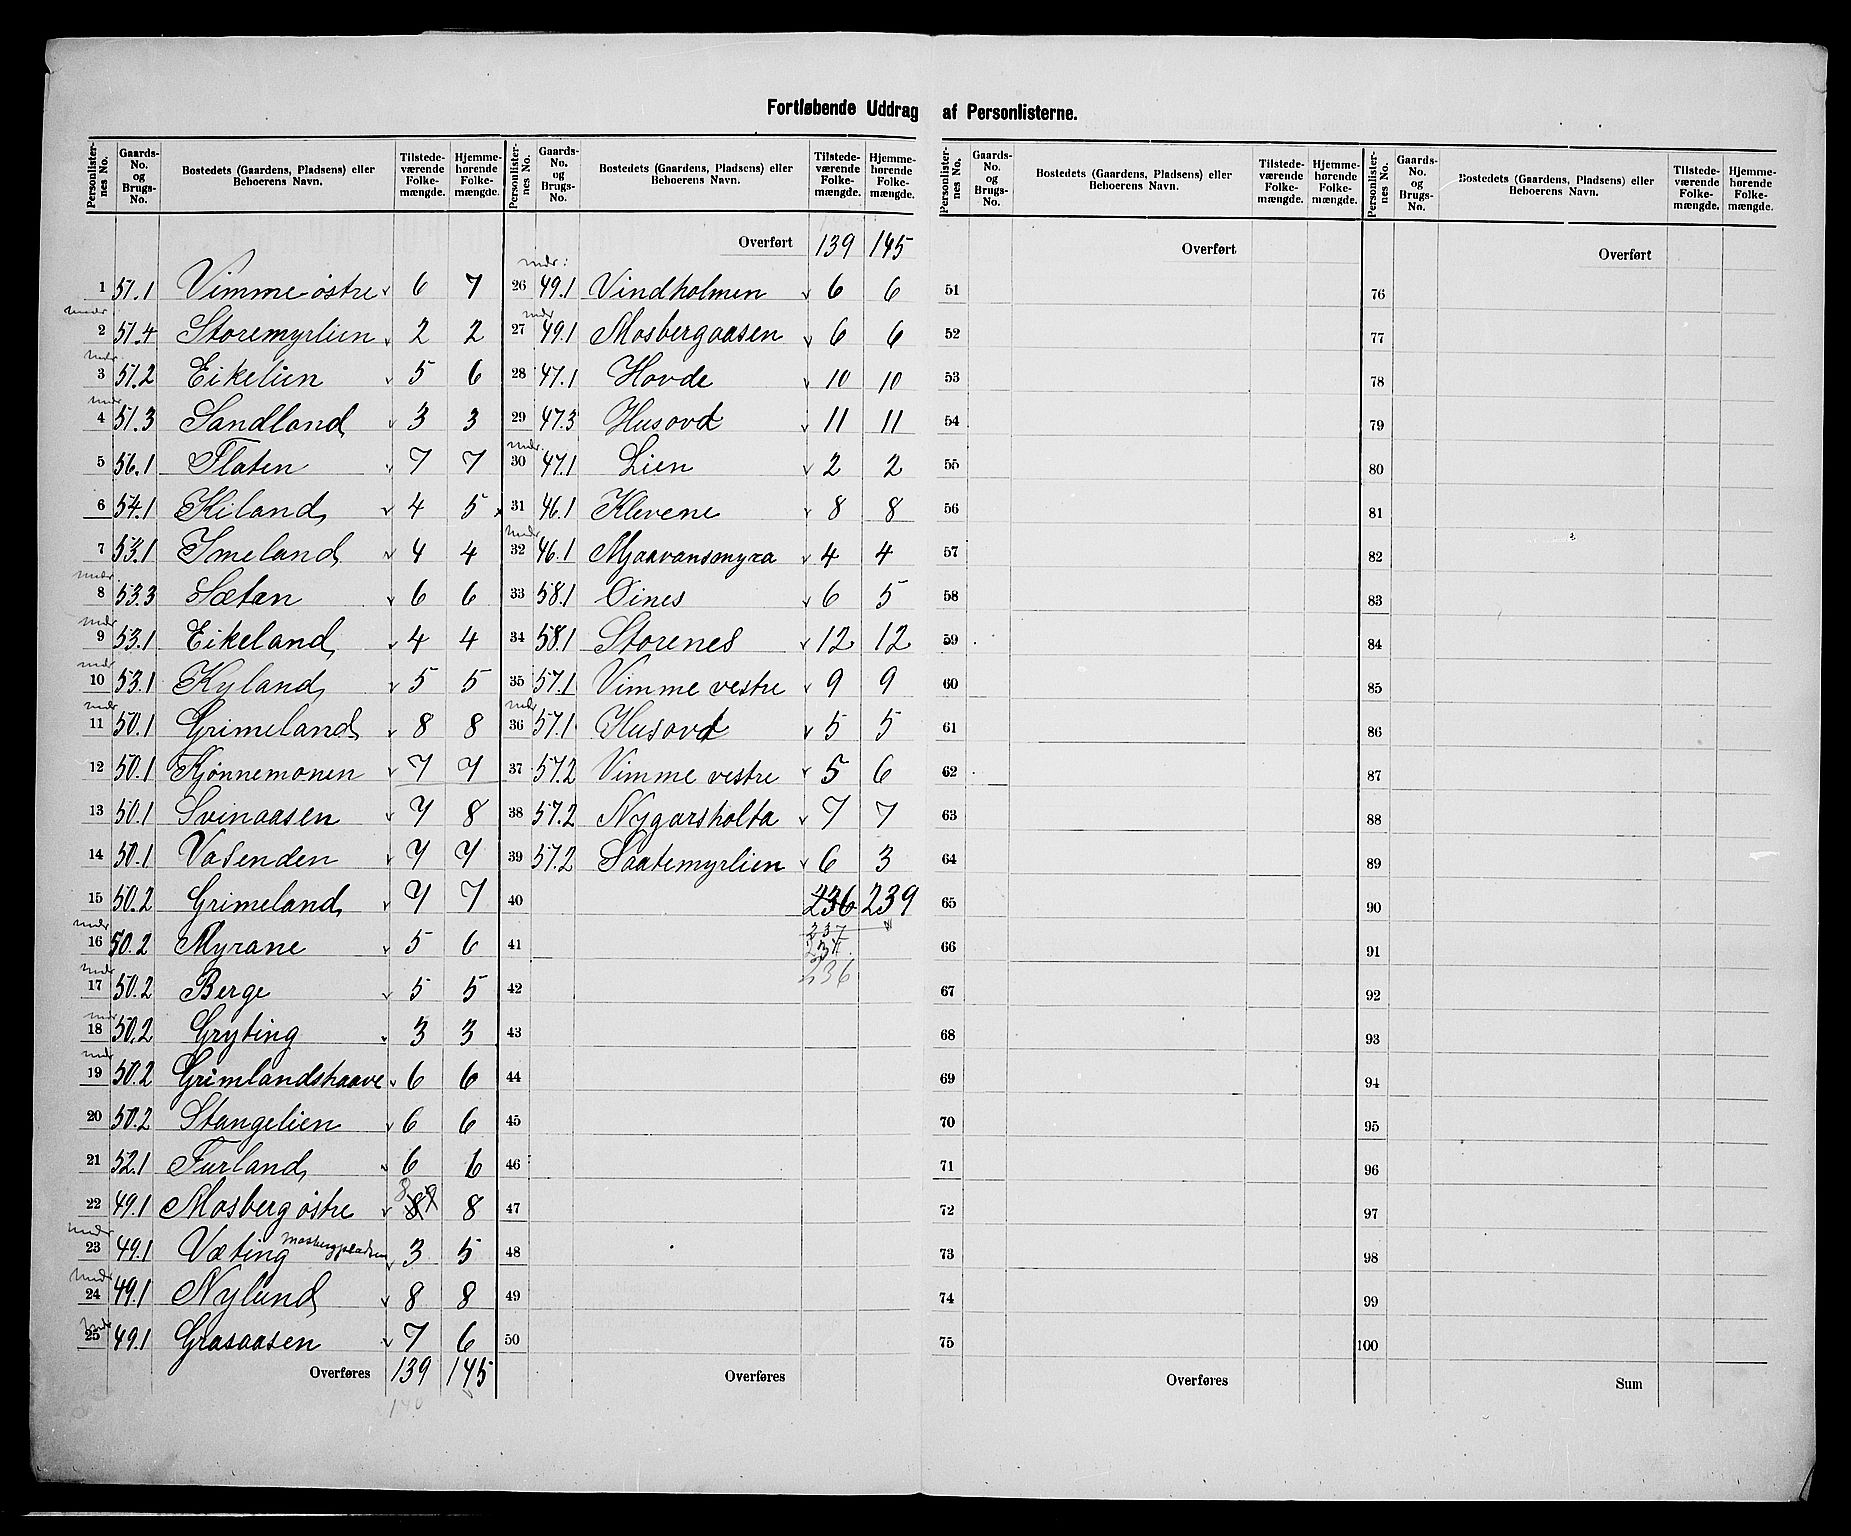 Fortløbende Uddrag af Personlisterne.
Personlisternes No. Gaards-No. og Brugs-No. Bostedets (Gaardens, Pladsens) eller Beboerens Navn. Tilstedeværende Folkemængde. Hjemmehørende Folkemængde.
Personlisternes No. Gaards-No. og Brugs-No. Bostedets (Gaardens, Pladsens) eller Beboerens Navn. Tilstedeværende Folkemængde. Hjemmehørende Folkemængde.
Personlisternes No. Gaards-No. og Brugs-No. Bostedets (Gaardens, Pladsens) eller Beboerens Navn. Tilstedeværende Folkemængde. Hjemmehørende Folkemængde.
Personlisternes No. Gaards-No. og Brugs-No. Bostedets (Gaardens, Pladsens) eller Beboerens Navn. Tilstedeværende Folkemængde. Hjemmehørende Folkemængde.
1 51.1 Vimme østre 6 7
2 51.4 Storemyrlien 2 2
3 51.2 Eikelien 5 6
4 51.3 Sandland 3 3
5 56.1 Flaten 7 7
6 54.1 Kiland 4 5
7 53.1 Imeland 4 4
8 53.3 Sætan 6 6
9 53.1 Eikeland 4 4
10 53.1 Kyland 5 5
11 50.1 Grimeland 8 8
12 50.1 Kjønnemonen 7 7
13 50.1 Svinaasen 7 8
14 50.1 Vasenden 7 7
15 50.2 Grimeland 7 7
16 50.2 Myrane 5 6
17 50.2 Berge 5 5
18 50.2 Gryting 3 3
19 50.2 Grimlandshaave 6 6
20 50.2 Stangelien 6 6
21 52.1 Furland 6 6
22 49.1 Mosberg østre 8 8
23 49.1 Væting Mosbergpladsen 3 5
24 49.1 Nylund 8 8
25 49.1 Grasaasen 7 6
Overføres 139 145
140
Overført 139 145
26 49.1 Vindholmen 6 6
27 49.1 Mosbergaasen 6 6
28 47.1 Hovde 10 10
29 47.3 Husovd 11 11
30 47.1 Lien 2 2
31 46.1 Klevene 8 8
32 46.1 Mjaavansmyra 4 4
33 58.1 Øines 6 5
34 58.1 Storenes 12 12
35 57.1 Vimme vestre 9 9
36 57.1 Husovd 5 5
37 57.2 Vimme vestre 5 6
38 57.2 Nygarsholta 7 7
39 57.2 Saatemyrlien 6 3
40 236 239
41 237
42 236
43
44
45
46
47
48
49
50
Overføres
Overført
51
52
53
54
55
56
57
58
59
60
61
62
63
64
65
66
67
68
69
70
71
72
73
74
75
Overføres
Overført
76
77
78
79
80
81
82
83
84
85
86
87
88
89
90
91
92
93
94
95
96
97
98
99
100
Sum